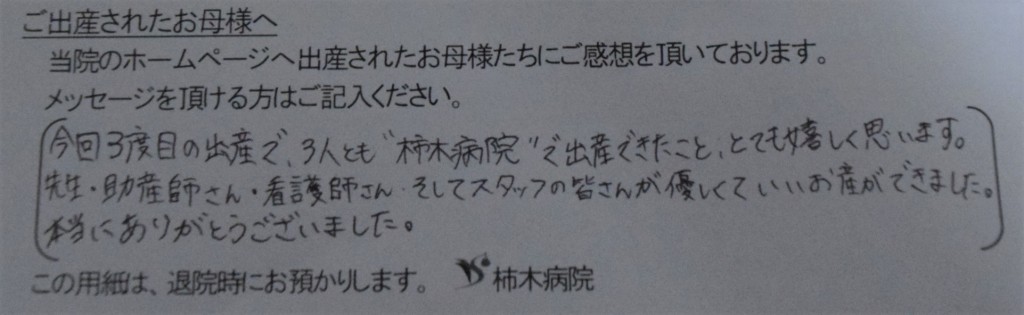 ご出産されたお母様へ
当院のホームページへ出産されたお母様たちにご感想を頂いております。
メッセージを頂ける方はご記入ください。
今回3度目の出産で、3人とも“柿木病院”で出産できたこと、とても嬉しく思います。
先生・助産師さん・看護師さん そしてスタッフの皆さんが優しくていいお産ができました。
本当にありがとうございました。
この用紙は、退院時にお預かりします。 柿木病院